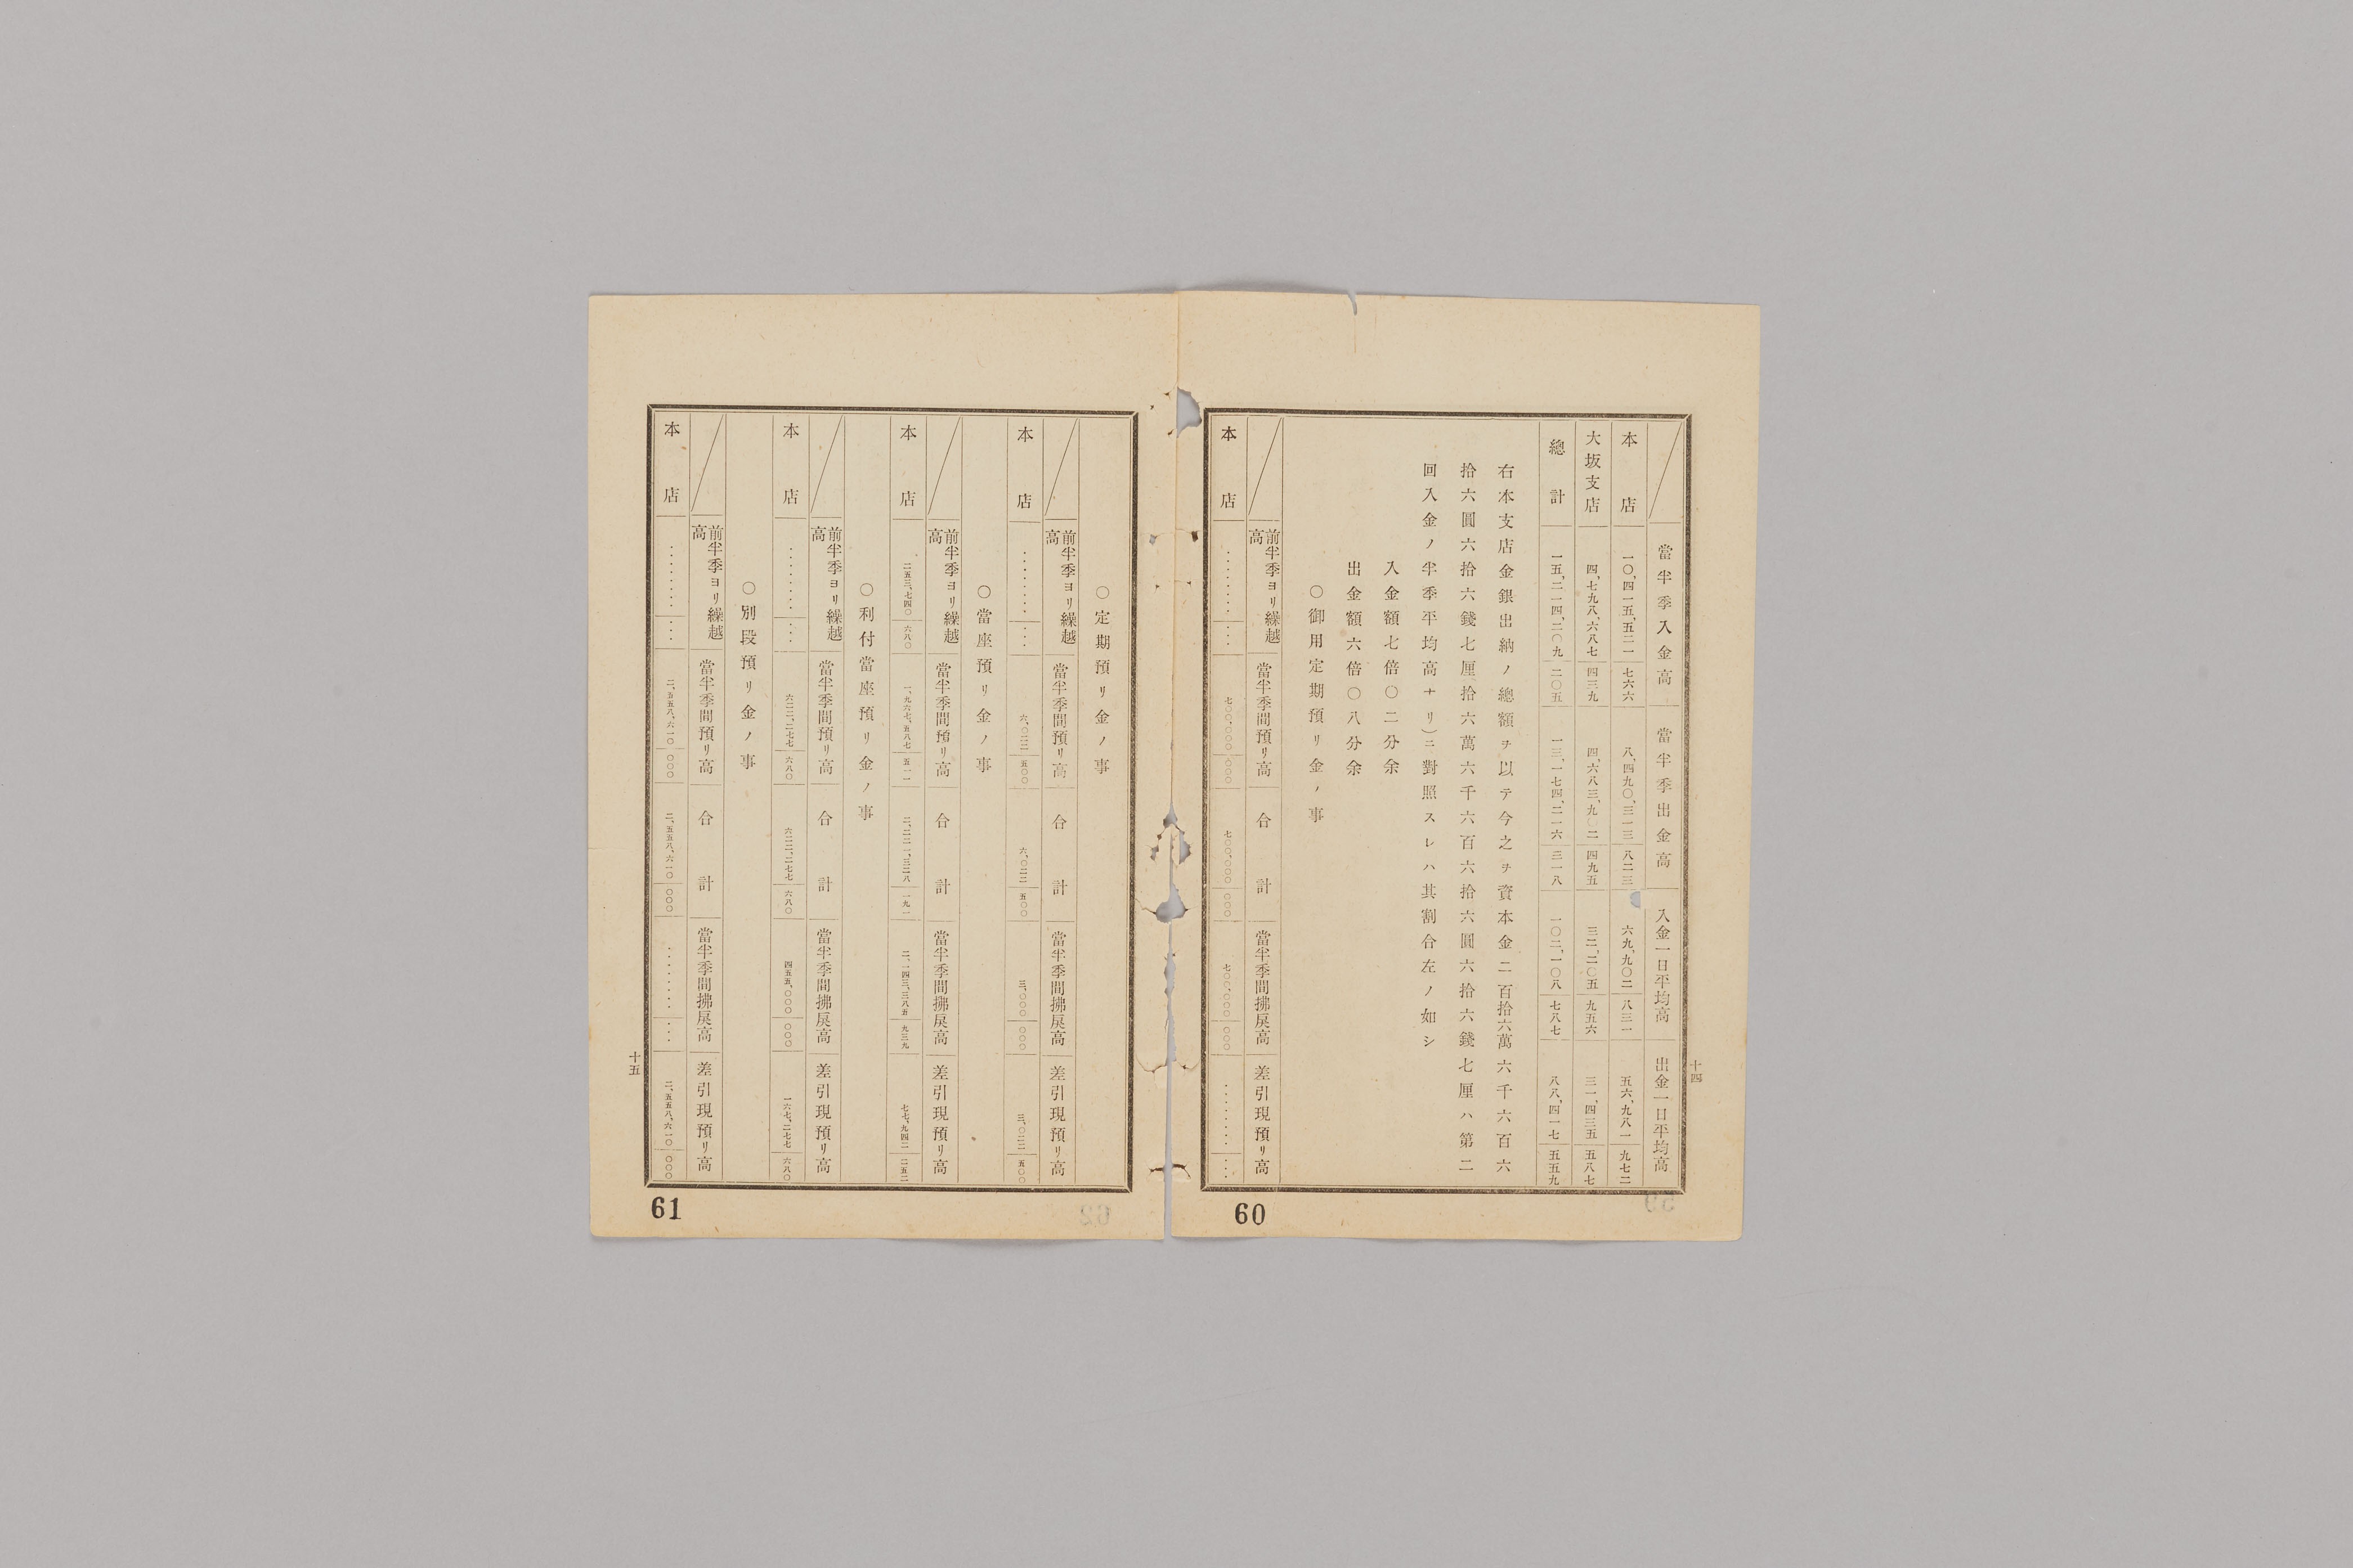 十四
當半季入金高 當半季出金高 入金一日平均高 出金一日平均高
本店 一〇、四一五、五二一 七六六 八、四九〇、三一三 八二三 六九、九〇二 八三一 五六、九八一 九七二
大坂支店 四、七九八、六八七 四三九 四、六八三、九〇二 四九五 三二、二〇五 九五六 三一、四三五 五八七
總計 一五、二一四、二〇九 二〇五 一三、一七四、二一六 三一八 一〇二、一〇八 七八七 八八、四一七 五五九
右本支店金銀出納ノ總額ヲ以テ今之ヲ資本金二百拾六萬六千六百六
拾六圓六拾六錢七厘拾六萬六千六百六拾六圓六拾六錢七厘ハ第二
回入金ノ半季平均高ナリ)ニ對照スレハ其割合左ノ如シ
入金額七倍〇二分余
出金額六倍〇八分余
〇御用定期預リ金ノ事
前半季ヨリ繰越高 當半季間預リ高 合計 當半季間拂戻高 差引現預リ高
本店 ........ ... 七〇〇、〇〇〇 〇〇〇 七〇〇、〇〇〇 〇〇〇 七〇〇、〇〇〇 〇〇〇 ........ ...
60
〇定期預リ金ノ事
前半季ヨリ繰越高 當半季間預リ高 合計 當半季間拂戻高 差引現預リ高
本店 ........ ... 六、〇二二 五〇〇 六、〇二二 五〇〇 三、〇〇〇 〇〇〇 三、〇二二 五〇〇
〇當座預リ金ノ事
前半季ヨリ繰越高 當半季間預リ高 合計 當半季間拂戻高 差引現預リ高
本店 二五三、七四〇 六八〇 一、九六七、五八七 五一一 二、二二一、三二八 一九一 二、一四三、三八五 九三九 七七、九四二 二五二
〇利付當座預リ金ノ事
前半季ヨリ繰越高 當半季間預リ高 合計 當半季間拂戻高 差引現預リ高
本店 ........ ... 六二二、二七七 六八〇 六二二、二七七 六八〇 四五五、〇〇〇 〇〇〇 一六七、二七七 六八〇
〇別段預リ金ノ事
前半季ヨリ繰越高 當半季間預リ高 合計 當半季間拂戻高 差引現預リ高
本店 ........ ... 二、五五八、六一〇 〇〇〇 二、五五八、六一〇 〇〇〇 ........ ... 二、五五八、六一〇 〇〇〇
十五
61